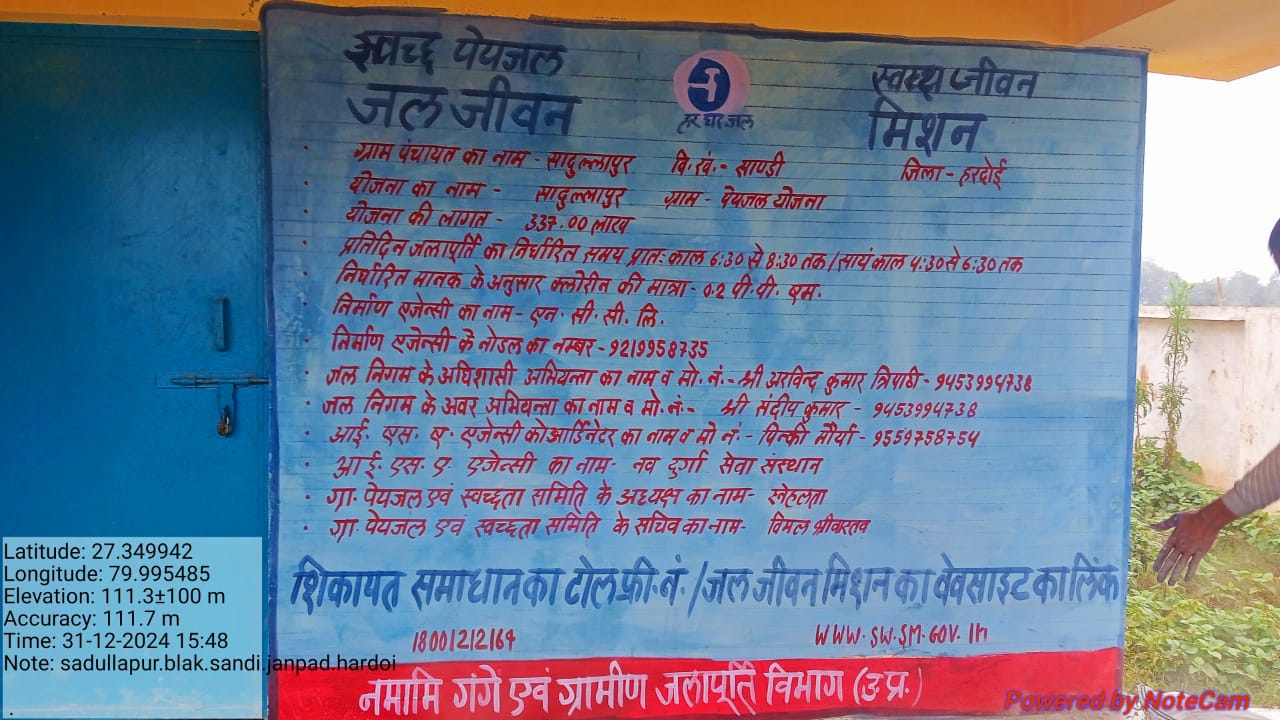 स्वच्छ पेयजल
स्वच्छ जीवन
जल जीवन
हर घर जल
मिशन
ग्राम पंचायत का नाम - सादुल्लापुर वि.खं.- साण्डी जिला - हरदोई
योजना का नाम - सादुल्लापुर ग्राम - पेयजल योजना
योजना की लागत - 337.00 लाख
प्रतिदिन जलापूर्ति का निर्धारित समय प्रातः काल 6:30 से 8:30 तक / सायं काल 4:30 से 6:30 तक
निर्धारित मानक के अनुसार क्लोरीन की मात्रा - 0.2 पी.पी. एम.
निर्माण एजेन्सी का नाम - एन. सी. सी. लि.
निर्माण एजेन्सी के नोडल का नम्बर - 9219958735
जल निगम के अधिशासी अभियन्ता का नाम व मो. नं.- श्री अरविन्द कुमार त्रिपाठी - 9453994738
जल निगम के अवर अभियन्ता का नाम व मो. नं.- श्री संदीप कुमार - 9453994738
आई. एस. ए. एजेन्सी कोआर्डिनेटर का नाम व मो नं.- पिन्की मौर्या - 9559758754
आई. एस. ए. एजेन्सी का नाम- नव दुर्गा सेवा संस्थान
गा. पेयजल एवं स्वच्छता समिति के अध्यक्ष का नाम- स्नेहलता
गा. पेयजल एवं स्वच्छता समिति के सचिव का नाम- विमल श्रीवास्तव
शिकायत समाधान का टोल फ्री. नं. / जल जीवन मिशन का वेबसाइट का लिंक
18001212164 WWW.SW.SM.GOV.IN
नमामि गंगे एवं ग्रामीण जलापूर्ति विभाग (उ.प्र.)
Latitude: 27.349942
Longitude: 79.995485
Elevation: 111.3±100 m
Accuracy: 111.7 m
Time: 31-12-2024 15:48
Note: sadullapur.blak.sandi.janpad.hardoi
.
Powered by NoteCam